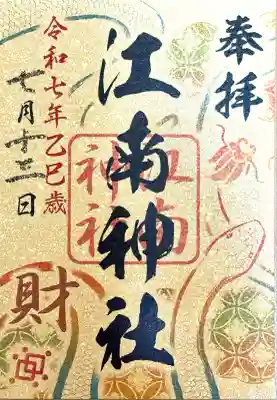 奉拝
江南神社
江南神社
令和七年乙巳歳
七月十三日
財